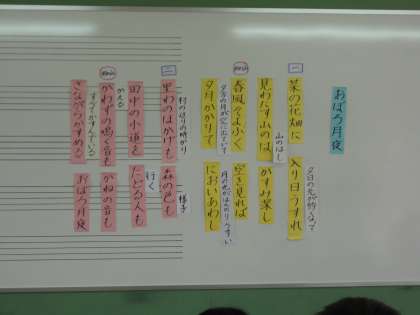 おぼろ月夜
一
菜の花畑に 入り日うすれ
夕日の光が弱くなって
見わたす山のは かすみ深し
山のはし
春風そよふく 空を見れば
夕方の月が空に出ていて
夕月かかりて においあわし
月の光がほんのりうすい
二
里わのほかげも 森の色も
村の辺りの明かり
様子
田中の小道を たどる人も
行く
かわずの鳴く音も かねの音も
かえる
すべてがかすんでいる
さながらかすめる おぼろ月夜